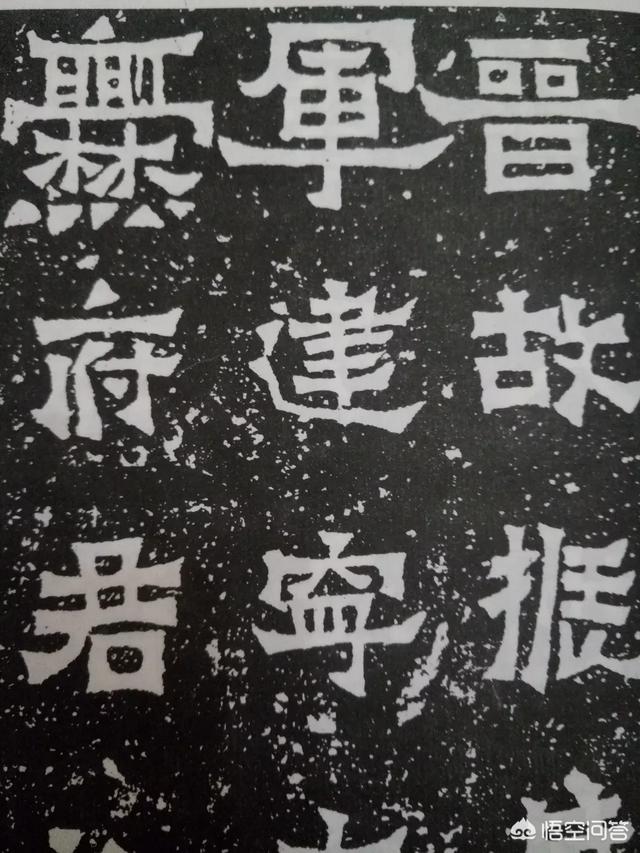 晉故振
軍建寧
爨府君
悟空问答